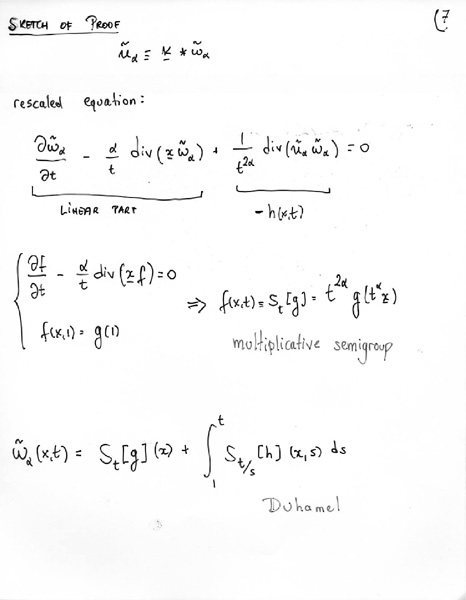 SKETCH OF PROOF (7
ũ_α ≡ K * ω̃_α
rescaled equation:
∂ω̃_α/∂t - α/t div(x ω̃_α) + 1/t^{2α} div(ũ_α ω̃_α) = 0
LINEAR PART -h(x,t)
∂f/∂t - α/t div(x f) = 0
f(x,1) = g(1)
⇒ f(x,t) = S_t[g] = t^{2α} g(t^α x)
multiplicative semigroup
ω̃_α(x,t) = S_t[g](x) + ∫_1^t S_{t/s}[h](x,s) ds
Duhamel